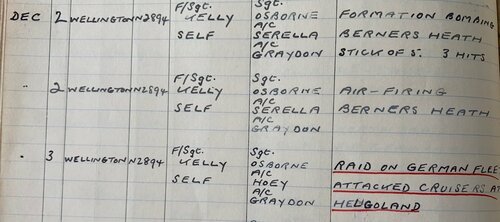 DEC 2 WELLINGTON N2894 F/Sgt. KELLY SELF Sgt. OSBORNE A/C SERELLA A/C GRAYDON FORMATION BOMBING BERNERS HEATH STICK OF 5. 3 HITS
" 2 WELLINGTON N2894 F/Sgt. KELLY SELF Sgt. OSBORNE A/C SERELLA A/C GRAYDON AIR-FIRING BERNERS HEATH
" 3 WELLINGTON N2894 F/Sgt. KELLY SELF Sgt. OSBORNE A/C HOEY A/C GRAYDON RAID ON GERMAN FLEE
ATTACKED CRUISERS AT
HELIGOLAND